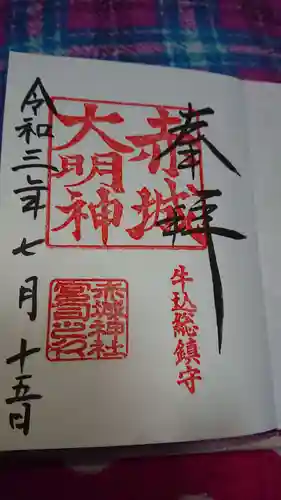 奉拝
赤城
大明神
牛込總鎮守
赤城神社
宮司之印
令和三年七月十五日